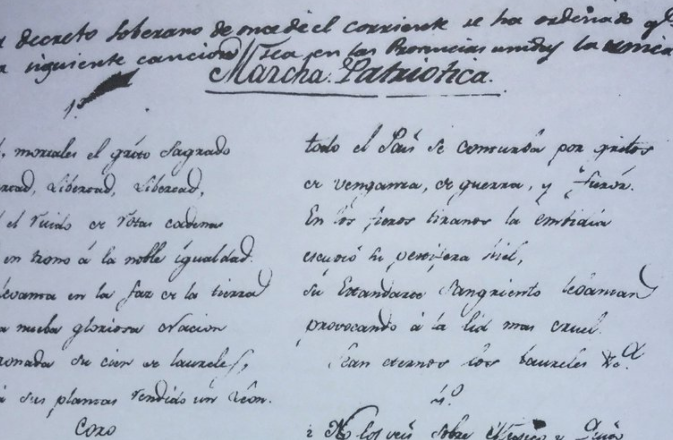 decreto soberano de once del corriente se ha ordenado qe
siguiente cancion sea en las Provincias unidas la unica
Marcha Patriotica.
1º
mortales el grito sagrado
Libertad, Libertad,
el ruido de rotas cadenas
en trono á la noble igualdad.
en la faz de la tierra
nueba gloriosa Nacion
su cien de laureles,
á sus plantas rendido un Leon.
Coro
todo el País se conturba por gritos
de venganza, de guerra, y furór.
En los fieros tiranos la embidia
escupió su pestifera hiel,
su Estandarte sangriento lebantan
provocando á la lid mas cruel.
Sean eternos los laureles &.a
4º
¿No los veis sobre Mexico y Quito